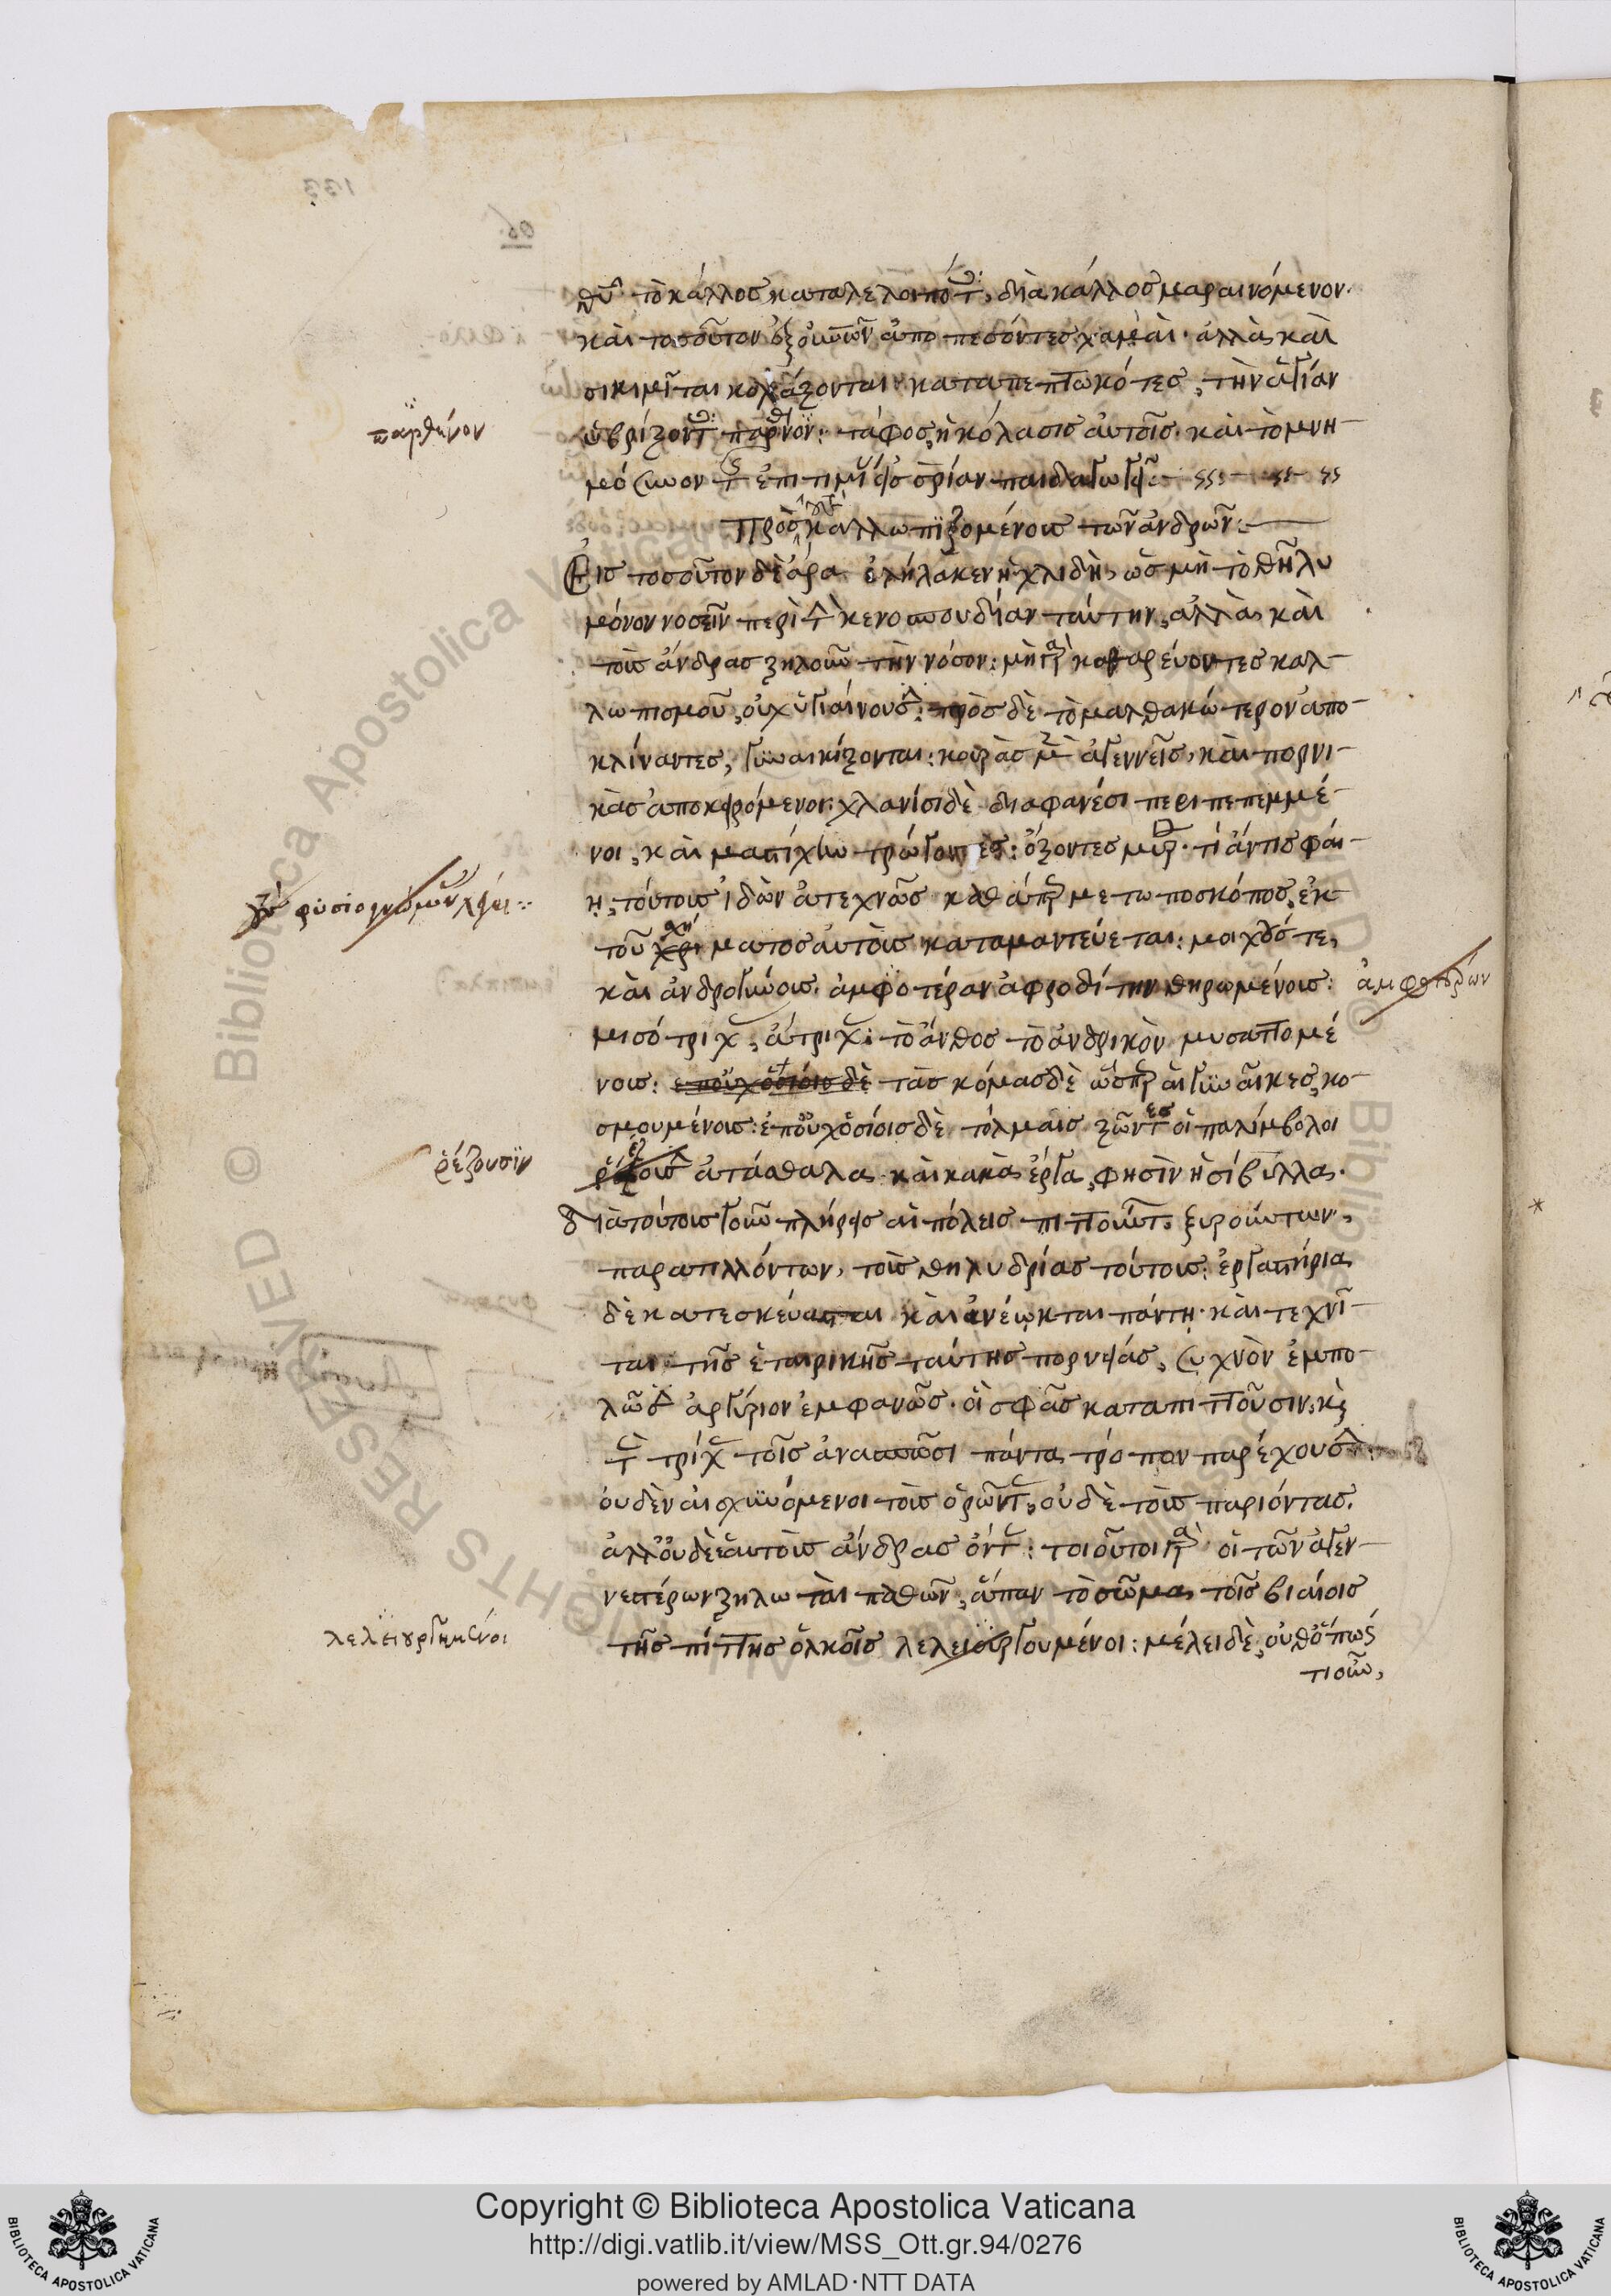 θῦ τὸ κάλλος καταλελοιπότ, διὰ κάλλος μαραινόμενον.
καὶ τοσοῦτον ἐξ οὐνῶν ἀποπεσόντες χαμαὶ. ἀλλὰ καὶ
σικιμῖται κολάζονται καταπεπτωκότες, τὴν ἁγίαν
ὑβρίζοντ παρθνον: τάφος ἡ κόλασις αὐτοῖς. καὶ τὸ μνη-
μόσυνον τ ἐπιτιμί ἐς σρίαν παιδαγωγεῖ
Πρὸς καλλωπϊζομένους τῶν ἀνδρῶν:
Εἰς τοσοῦτον δὲ ἄρα ἐλήλακεν ἡ χλιδὴ, ὡς μὴ τὸ θῆλυ
μόνον νοσεῖν περὶ τ κενοσπουδίαν ταύτην, ἀλλὰ καὶ
τοὺς ἄνδρας ζηλοῦν τὴν νόσον: μὴ γὰρ καθαρεύοντες καλ-
λωπισμοῦ, οὐχ ὑγιαίνουσ: πρὸς δὲ τὸ μαλθακώτερον ἀπο-
κλίναντες, γυναικίζονται: κουρὰς μὲν ἀγεννεῖς, καὶ πορνι-
κὰς ἀποκειρόμενοι χλανίσι δὲ διαφανέσι περιπεπεμμέ-
νοι, καὶ μαστίχην τρώγοντες: ὄζοντες μύρ. τί ἄν τις φαί-
η, τούτους ἰδὼν ἀτεχνῶς καθάπερ μετωποσκόπος, ἐκ
τοῦ σχήματος αὐτοὺς καταμαντεύεται: μοιχούς τε,
καὶ ἀνδρογύνους. ἀμφοτέραν ἀφροδίτην θηρωμένους: ἀμφοτέρων
μισότριχ, ἄτριχ: τὸ ἄνθος τὸ ἀνδρικὸν μυσαττομέ
νους: ἐπ οὐχ ὁσίοις δὲ τὰς κόμας δὲ ὥσπερ αἱ γυναῖκες, κο-
σμουμένους: ἐπ οὐχ ὁσίοις δὲ τόλμαις ζῶντες οἱ παλίμβολοι
ἀτάσθαλα καὶ κακὰ ἔργα, φησὶν ἡ σίβυλλα.
διὰ τούτους γοῦν πλήρεις αἱ πόλεις πιττούντ. ξυρούντων,
παρατιλλόντων, τοὺς θηλυδρίας τούτους: ἐργαστήρια
δὲ κατεσκεύασται καὶ ἀνέῳκται πάντη. καὶ τεχνῖ-
ται τῆς ἑταιρικῆς ταύτης πορνείας, συχνὸν ἐμπο-
λῶσ ἀργύριον ἐμφανῶς. οἳ σφᾶς καταπιττοῦσιν, κὶ
τ τρίχ τοῖς ἀνασπῶσι πάντα τρόπον παρέχουσ
οὐδὲν αἰσχυνόμενοι τοὺς ὁρῶντ, οὐδὲ τοὺς παριόντας.
ἀλλ οὐδὲ ἑαυτοὺς ἄνδρας ὄντ: τοιοῦτοι γὰρ οἱ τῶν ἀγεν-
νεστέρων ζηλωταὶ παθῶν, ἅπαν τὸ σῶμα τοῖς βιαίοις
τῆς πίττης ὁλκοῖς λελειουργουμένοι: μέλει δὲ, οὐθ ὅπωσ
τιοῦν,
παρθένον
φυσιογνωμῶν
ῥέζουσϊν
λελειουργημένοι
Copyright © Biblioteca Apostolica Vaticana
http://digi.vatlib.it/view/MSS_Ott.gr.94/0276
powered by AMLAD·NTT DATA
BIBLIOTECA APOSTOLICA VATICANA
BIBLIOTECA APOSTOLICA VATICANA